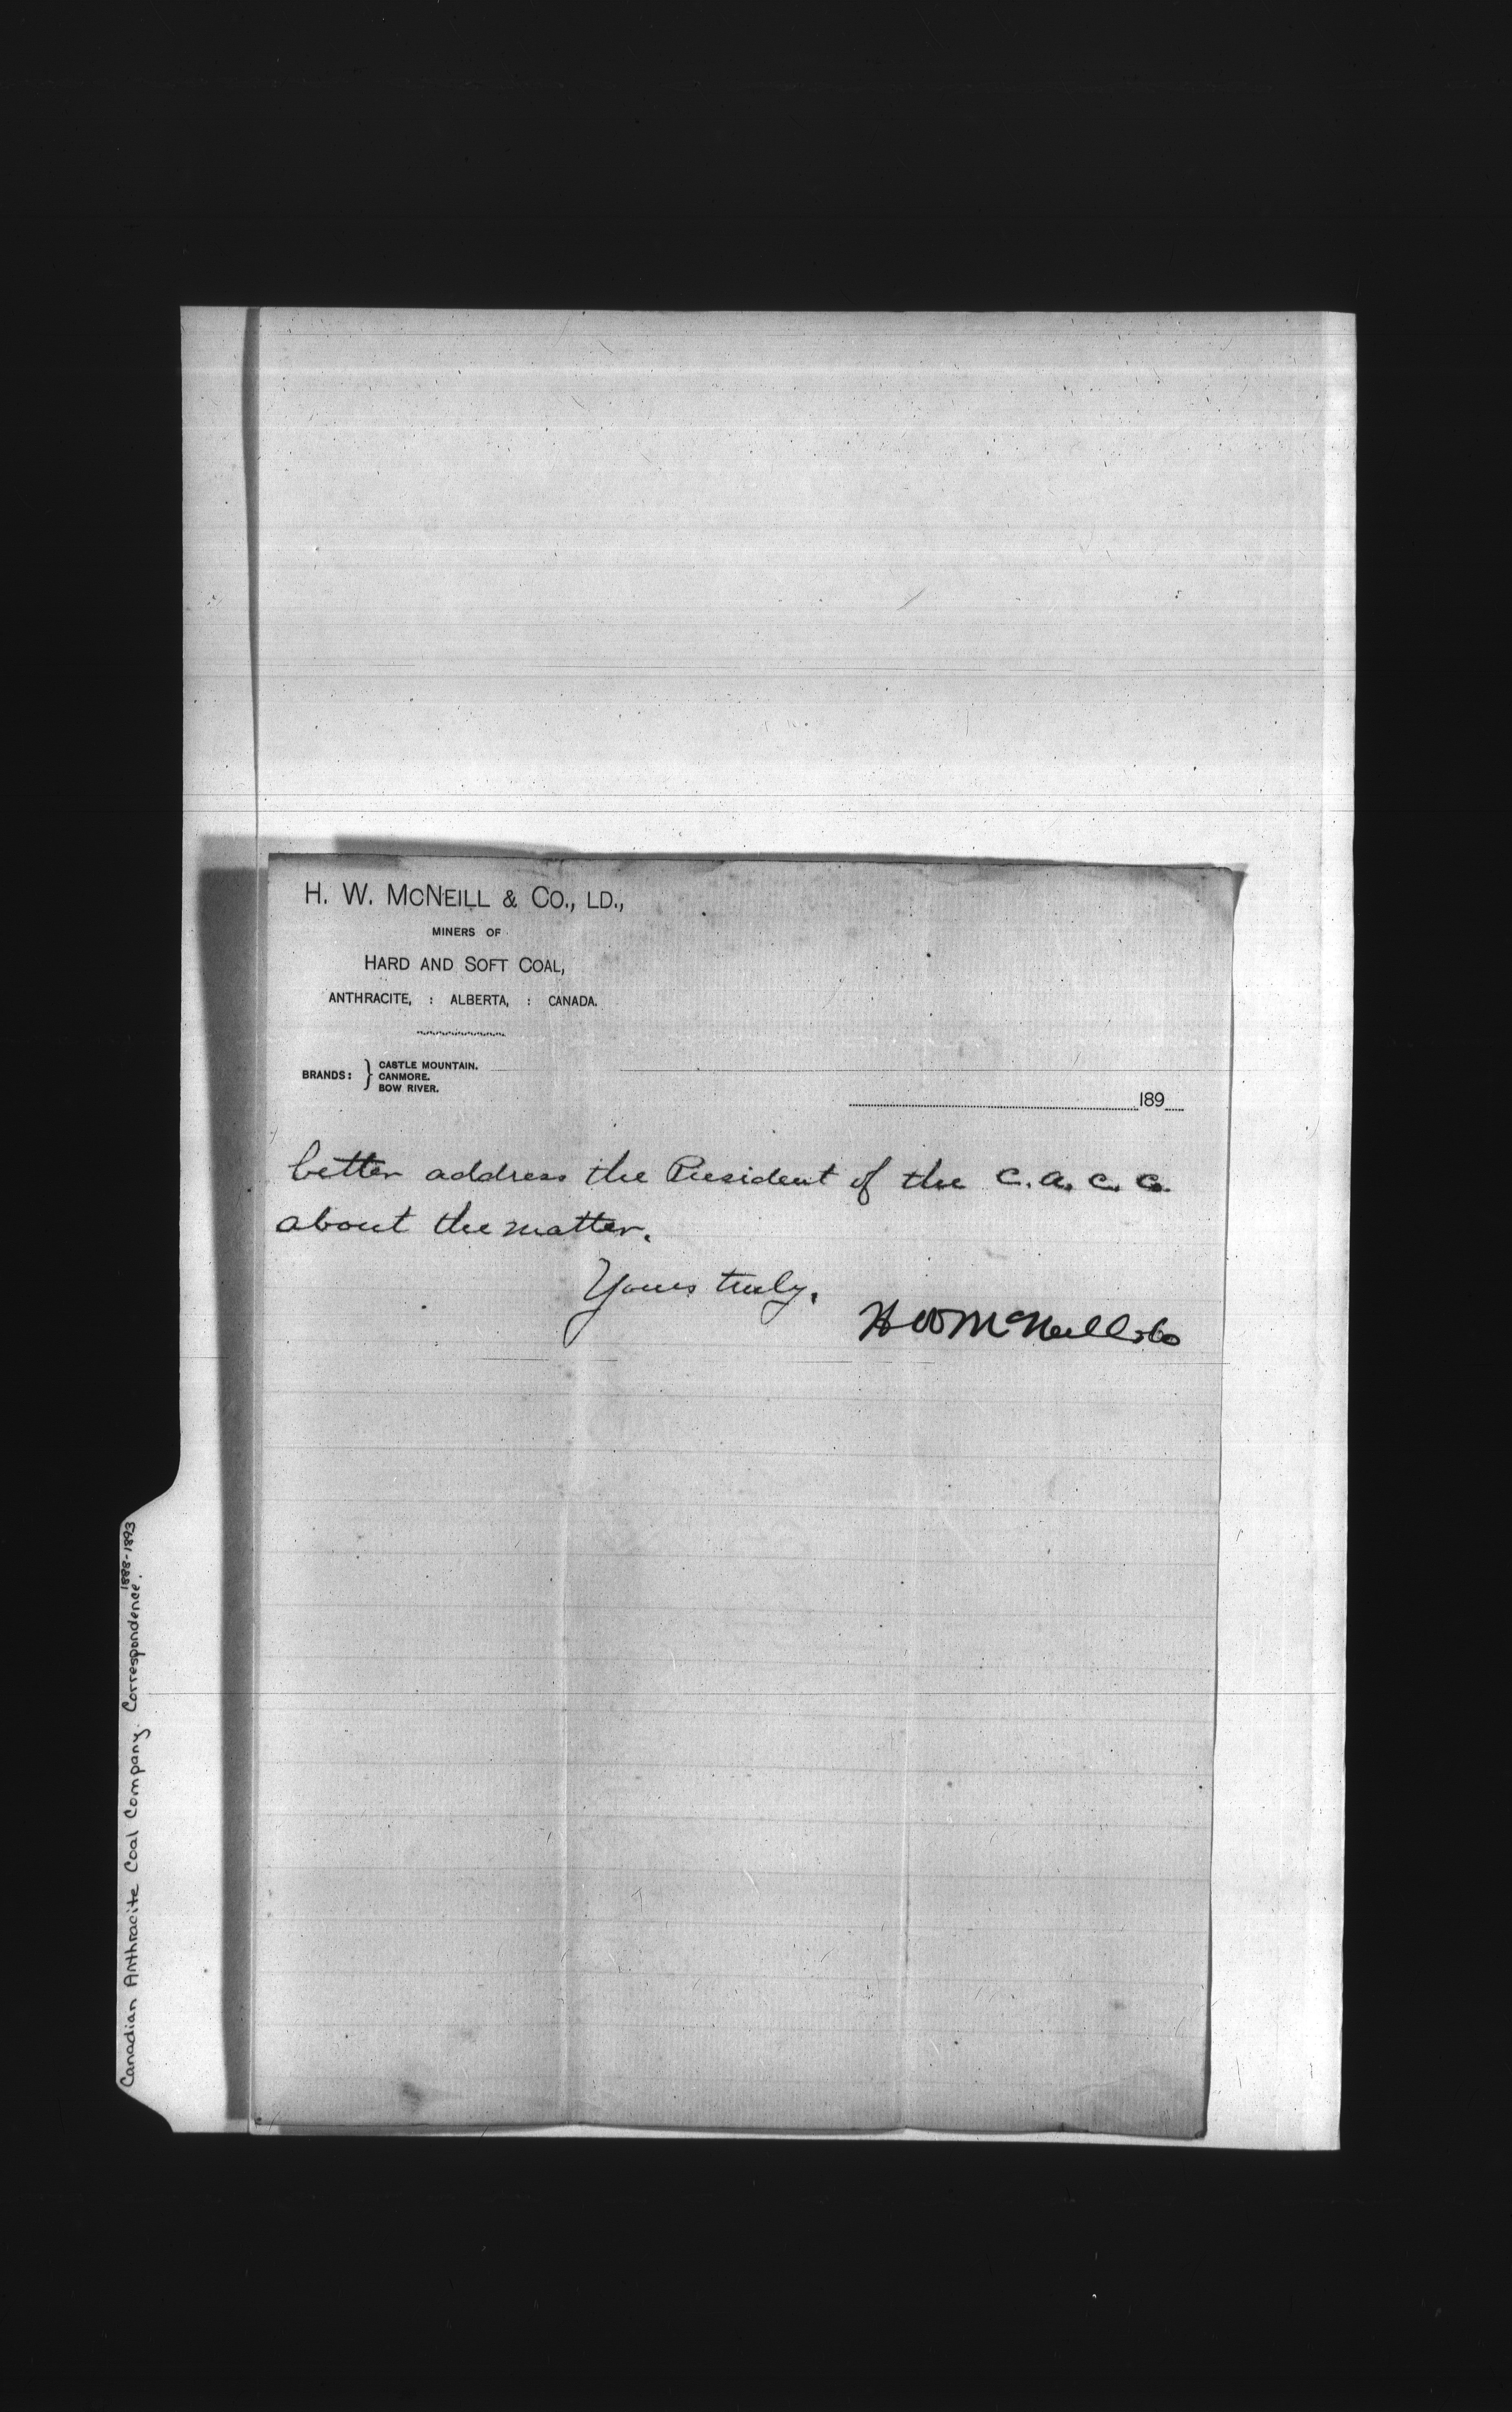 H. W. McNEILL & CO., LD.,
MINERS OF
HARD AND SOFT COAL,
ANTHRACITE, : ALBERTA, : CANADA.
BRANDS: } CASTLE MOUNTAIN.
CANMORE.
BOW RIVER.
189
better address the President of the C. A. C. Co.
about the matter.
Yours truly,
H W McNeill & Co
Canadian Anthracite Coal Company. Correspondence.
1888-1893